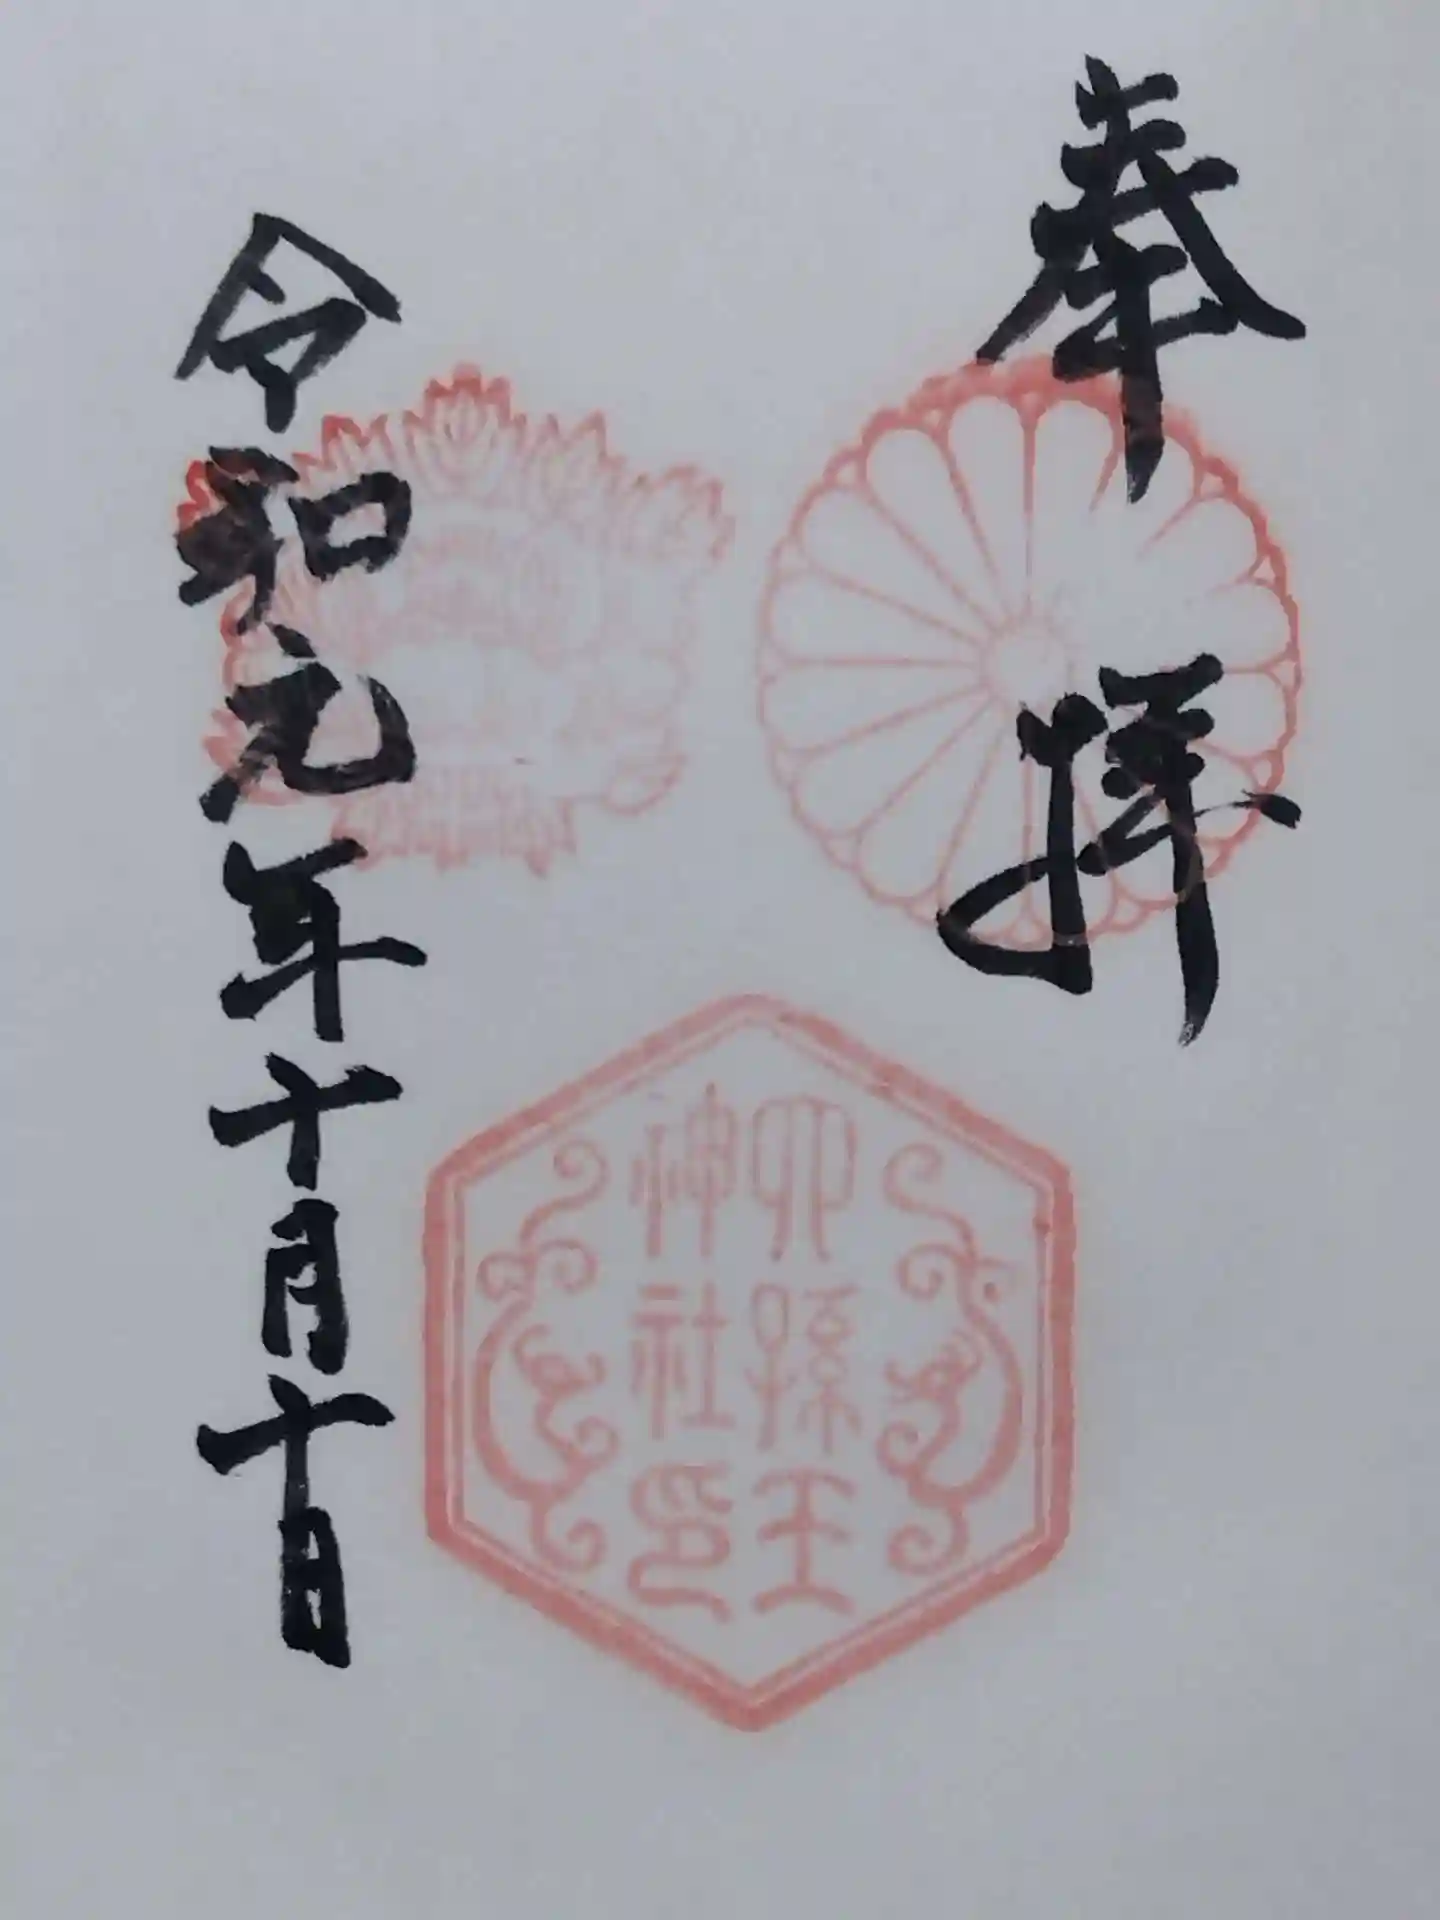 奉拝
六孫王
神社印
令和元年十月十日